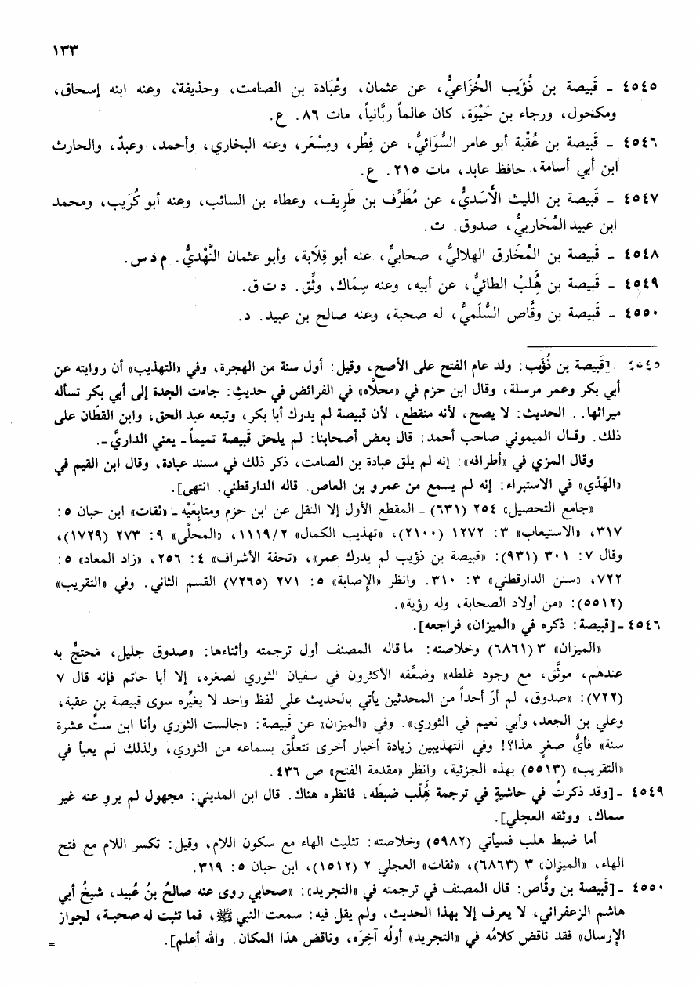 ١٣٣
٤٥٤٥ - قَبيصة بن ذُؤَيب الخُزَاعيُّ، عن عثمان، وعُبَادة بن الصامت، وحذيفة، وعنه ابنه إسحاق،
ومكحول، ورجاء بن حَيْوَة، كان عالماً ربَّانياً، مات ٨٦. ع.
٤٥٤٦ - قَبيصة بن عُقْبة أبو عامر السُّوَائيُّ، عن فِطْر، ومِسْعَر، وعنه البخاري، وأحمد، وعبدٌ، والحارث
ابن أبي أسامة، حافظ عابد، مات ٢١٥. ع.
٤٥٤٧ - قَبيصة بن الليث الأَسَديُّ، عن مُطَرِّف بن طَرِيف، وعطاء بن السائب، وعنه أبو كُرَيب، ومحمد
ابن عبيد المُحَاربيُّ، صدوق. ت.
٤٥٤٨ - قَبيصة بن المُخَارق الهلاليُّ، صحابيٌّ، عنه أبو قِلَابة، وأبو عثمان النَّهْديُّ. م د س.
٤٥٤٩ - قَبيصة بن هُلْب الطائيُّ، عن أبيه، وعنه سِمَاك، وثِّق. د ت ق.
٤٥٥٠ - قَبيصة بن وقَّاص السُّلَميُّ، له صحبة، وعنه صالح بن عبيد. د.
٤٥٤٥ - [قَبيصة بن ذُؤَيب: ولد عام الفتح على الأصح، وقيل: أول سنة من الهجرة، وفي «التهذيب» أن روايته عن
أبي بكر وعمر مرسلة، وقال ابن حزم في «محلَّاه» في الفرائض في حديث: جاءت الجدة إلى أبي بكر تسأله
ميراثها.. الحديث: لا يصح، لأنه منقطع، لأن قبيصة لم يدرك أبا بكر، وتبعه عبد الحق، وابن القطَّان على
ذلك. وقال الميموني صاحب أحمد: قال بعض أصحابنا: لم يلحق قبيصة تميماً - يعني الداريَّ -.
وقال المزي في «أطرافه»: إنه لم يلق عبادة بن الصامت، ذكر ذلك في مسند عبادة، وقال ابن القيم في
«الهَدْي» في الاستبراء: إنه لم يسمع من عمرو بن العاص. قاله الدارقطني. انتهى].
«جامع التحصيل» ٢٥٤ (٦٣١) - المقطع الأول إلا النقل عن ابن حزم ومتابِعَيْه - «ثقات» ابن حبان ٥:
٣١٧، «الاستيعاب» ٣: ١٢٧٢ (٢١٠٠)، «تهذيب الكمال» ١١١٩/٢، «المحلَّى» ٩: ٢٧٣ (١٧٢٩)،
وقال ٧: ٣٠١ (٩٣١): «قبيصة بن ذؤيب لم يدرك عمر»، «تحفة الأشراف» ٤: ٢٥٦، «زاد المعاد» ٥:
٧٢٢، «سنن الدارقطني» ٣: ٣١٠. وانظر «الإصابة» ٥: ٢٧١ (٧٢٦٥) القسم الثاني. وفي «التقريب»
(٥٥١٢): «من أولاد الصحابة، وله رؤية».
٤٥٤٦ - [قبيصة: ذكره في «الميزان» فراجعه].
«الميزان» ٣ (٦٨٦١) وخلاصته: ما قاله المصنف أول ترجمته وأثناءها: «صدوق جليل، محتجٌّ به
عندهم، موثَّق، مع وجود غلطه» وضعَّفه الأكثرون في سفيان الثوري لصغره، إلا أبا حاتم فإنه قال ٧
(٧٢٢): «صدوق، لم أرَ أحداً من المحدثين يأتي بالحديث على لفظ واحد لا يغيِّره سوى قبيصة بن عقبة،
وعلي بن الجعد، وأبي نعيم في الثوري». وفي «الميزان» عن قَبيصة: «جالست الثوري وأنا ابن ستَّ عشرة
سنة» فأيُّ صغرٍ هذا؟! وفي التهذيبين زيادة أخبار أخرى تتعلَّق بسماعه من الثوري، ولذلك لم يعبأ في
«التقريب» (٥٥١٣) بهذه الجزئية، وانظر «مقدمة الفتح» ص ٤٣٦.
٤٥٤٩ - [وقد ذكرتُ في حاشيةٍ في ترجمة هُلْب ضبطَه، فانظره هناك. قال ابن المديني: مجهول لم يرو عنه غير
سماك، ووثقه العجلي].
أما ضبط هلب فسيأتي (٥٩٨٢) وخلاصته: تثليث الهاء مع سكون اللام، وقيل: تكسر اللام مع فتح
الهاء، «الميزان» ٣ (٦٨٦٣)، «ثقات» العجلي ٢ (١٥١٢)، ابن حبان ٥: ٣١٩.
٤٥٥٠ - [قَبيصة بن وقَّاص: قال المصنف في ترجمته في «التجريد»: «صحابي روى عنه صالحُ بنُ عُبيد، شيخُ أبي
هاشم الزعفراني، لا يعرف إلا بهذا الحديث، ولم يقل فيه: سمعت النبي ﷺ، فما تثبت له صحبة، لجواز
الإرسال» فقد ناقض كلامُه في «التجريد» أولُه آخِرَه، وناقض هذا المكان. والله أعلم].
=